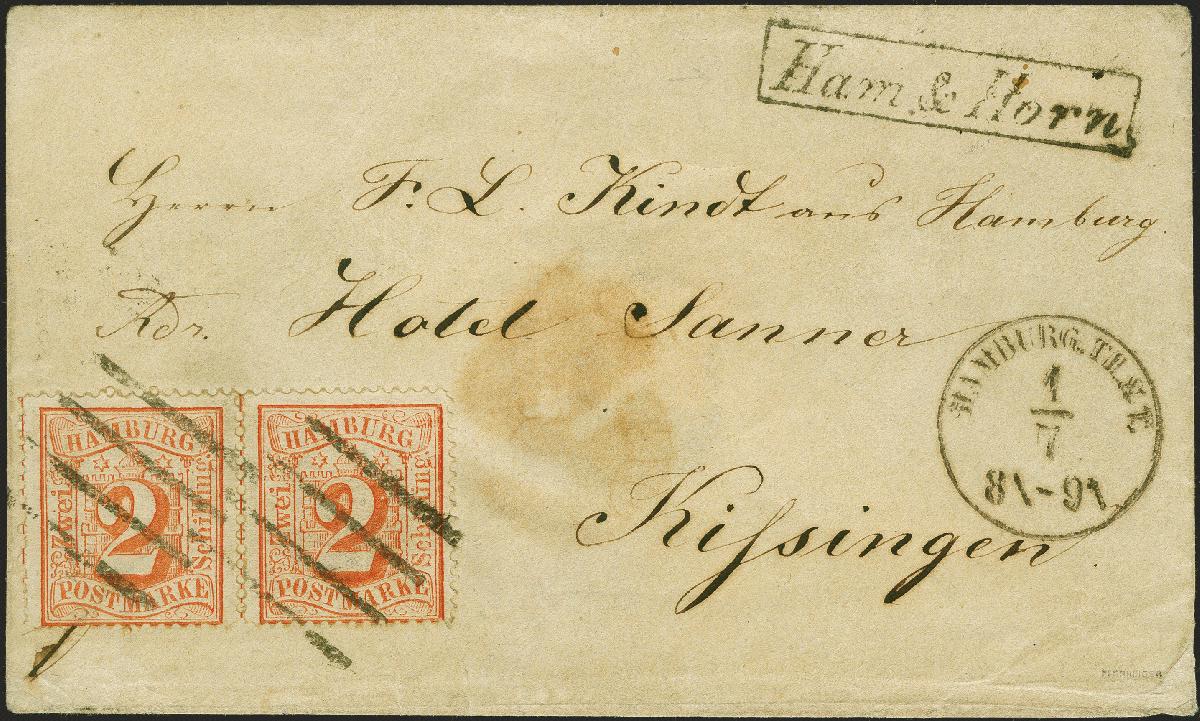 Ham & Horn
Herrn F. L. Kindt aus Hamburg.
Adr. Hotel Sanner
Kissingen
HAMBURG. TH. & T.
1
7
8½-9½
HAMBURG
Zwei
2
Schilling
POSTMARKE
HAMBURG
Zwei
2
Schilling
POSTMARKE